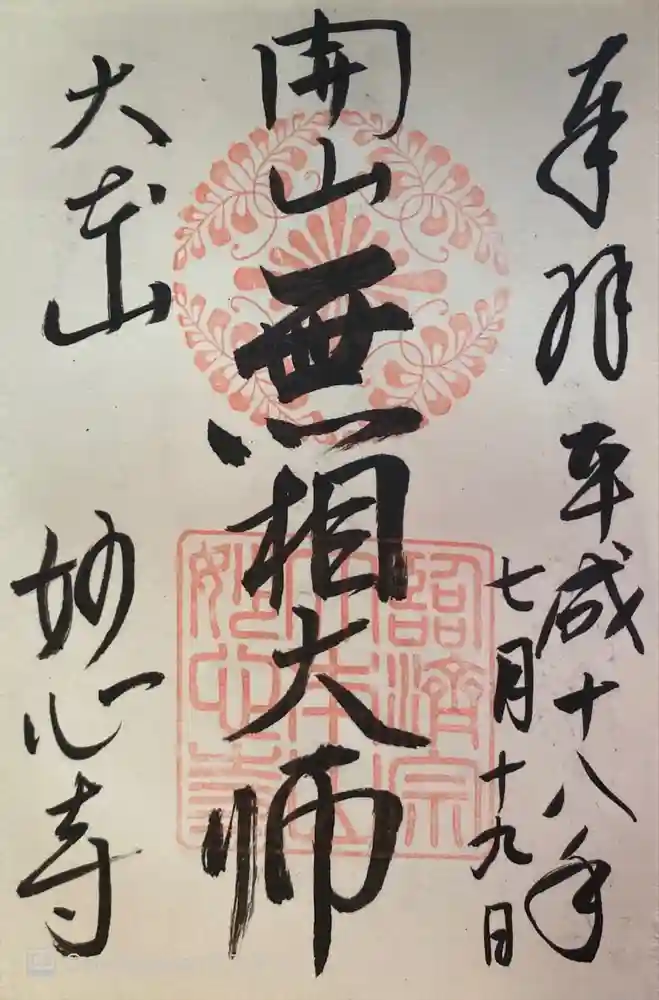 奉拝
平成十八年
七月十九日
開山
無相大師
大本山
妙心寺
臨済宗
大本山
妙心寺